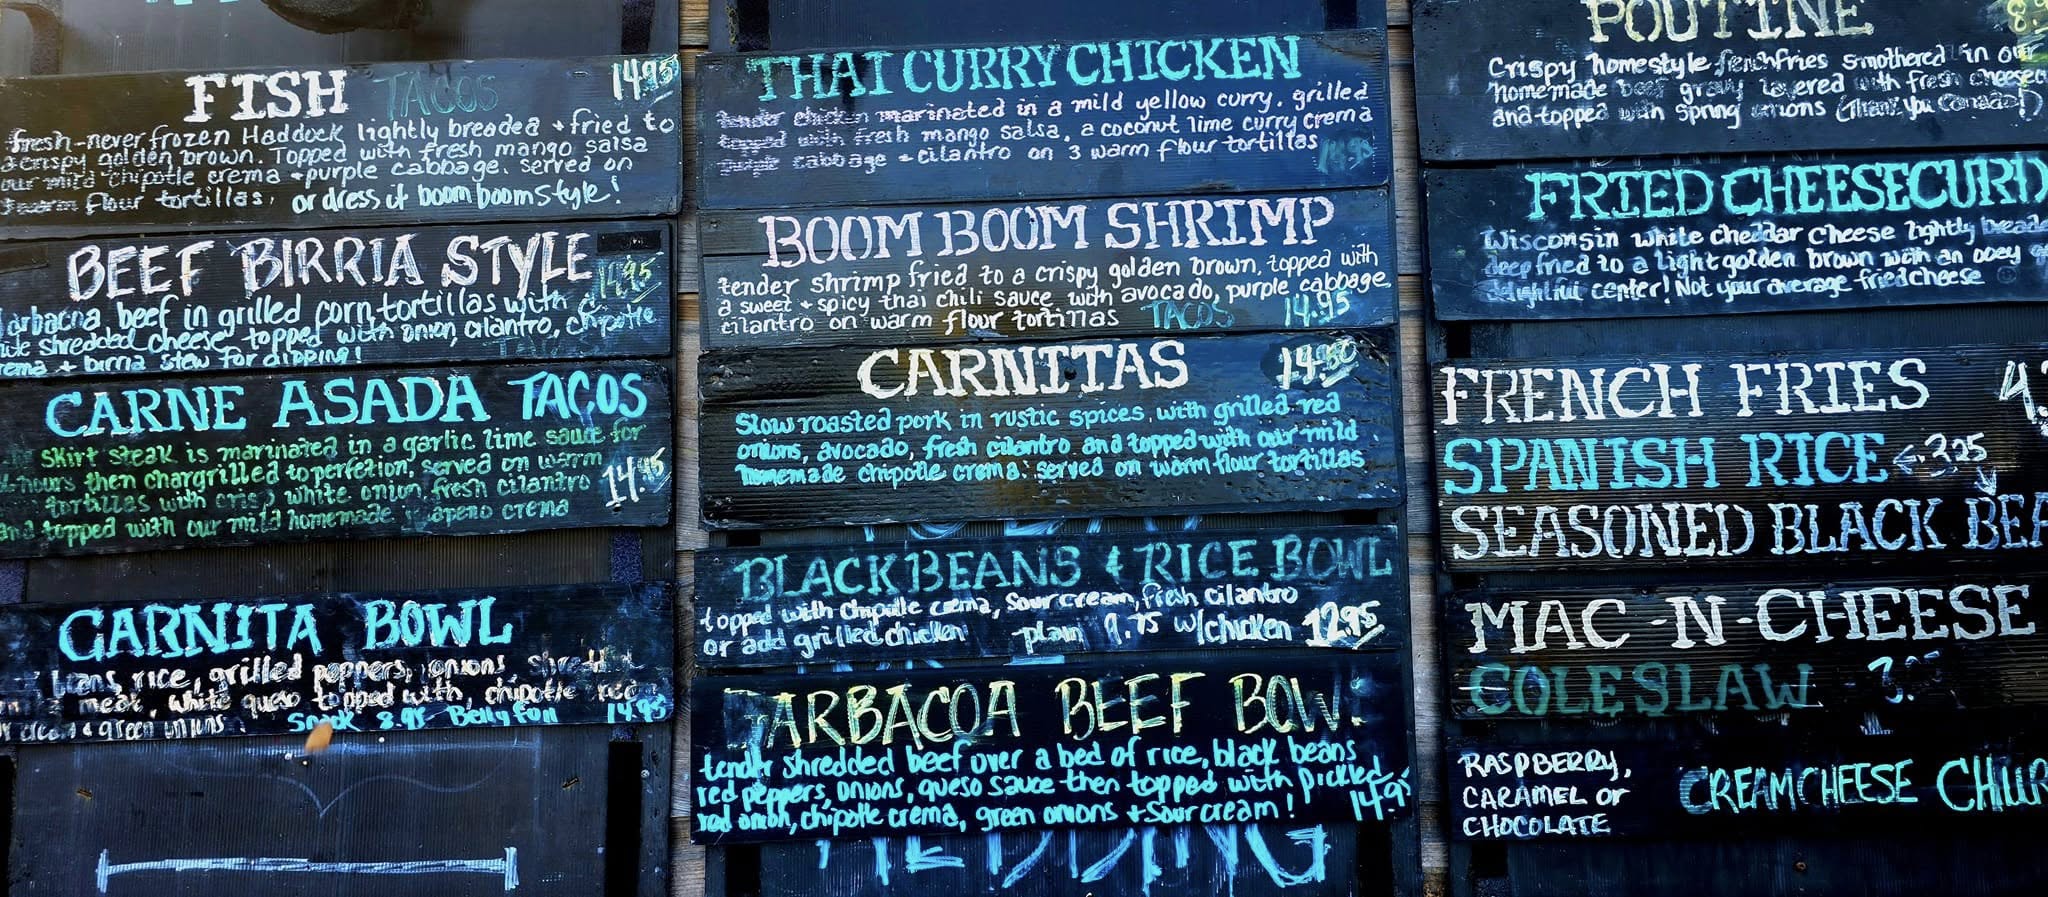 FISH TACOS 14.95
fresh-never frozen Haddock lightly breaded + fried to
a crispy golden brown. Topped with fresh mango salsa
our mild chipotle crema + purple cabbage. served on
warm flour tortillas. or dress it boom boom style!
BEEF BIRRIA STYLE 14.95
barbacoa beef in grilled corn tortillas with
shredded cheese topped with onion, cilantro, chipotle
crema + birria stew for dipping! TACOS
CARNE ASADA TACOS
skirt steak is marinated in a garlic lime sauce for
hours then chargrilled to perfetion, served on warm
tortillas with crisp white onion, fresh cilantro
and topped with our mild homemade jalapeno crema
14.95
CARNITA BOWL
beans, rice, grilled peppers, onions,
meat, white queso topped with, chipotle
+ green onions! Snack 8.95 Belly full 14.95
THAI CURRY CHICKEN
tender chicken marinated in a mild yellow curry. grilled
topped with fresh mango salsa, a coconut lime curry crema
purple cabbage + cilantro on 3 warm flour tortillas 14.95
BOOM BOOM SHRIMP
tender shrimp fried to a crispy golden brown, topped with
a sweet + spicy thai chili sauce with avocado, purple cabbage,
cilantro on warm flour tortillas TACOS 14.95
CARNITAS
Slow roasted pork in rustic spices, with grilled red
onions, avocado, fresh cilantro and topped with our mild
homemade chipotle crema. served on warm flour tortillas
BLACK BEANS & RICE BOWL
topped with chipotle crema, sour cream, fresh cilantro
or add grilled chicken plain 9.75 w/chicken 12.95
BARBACOA BEEF BOWL
tender shredded beef over a bed of rice, black beans
red peppers, onions, queso sauce then topped with pickled
red onion, chipotle crema, green onions + sour cream! 14.95
POUTINE
Crispy homestyle frenchfries smothered in our
homemade beef gravy layered with fresh cheesecu
and topped with spring onions (Thank you Canada!)
FRIED CHEESECURD
Wisconsin white cheddar cheese lightly breade
deep fried to a light golden brown with an ooey
delightful center! Not your average fried cheese
FRENCH FRIES
SPANISH RICE ← 3.25
SEASONED BLACK BEA
MAC-N-CHEESE
COLESLAW
RASPBERRY,
CARAMEL or
CHOCOLATE
CREAMCHEESE CHUR